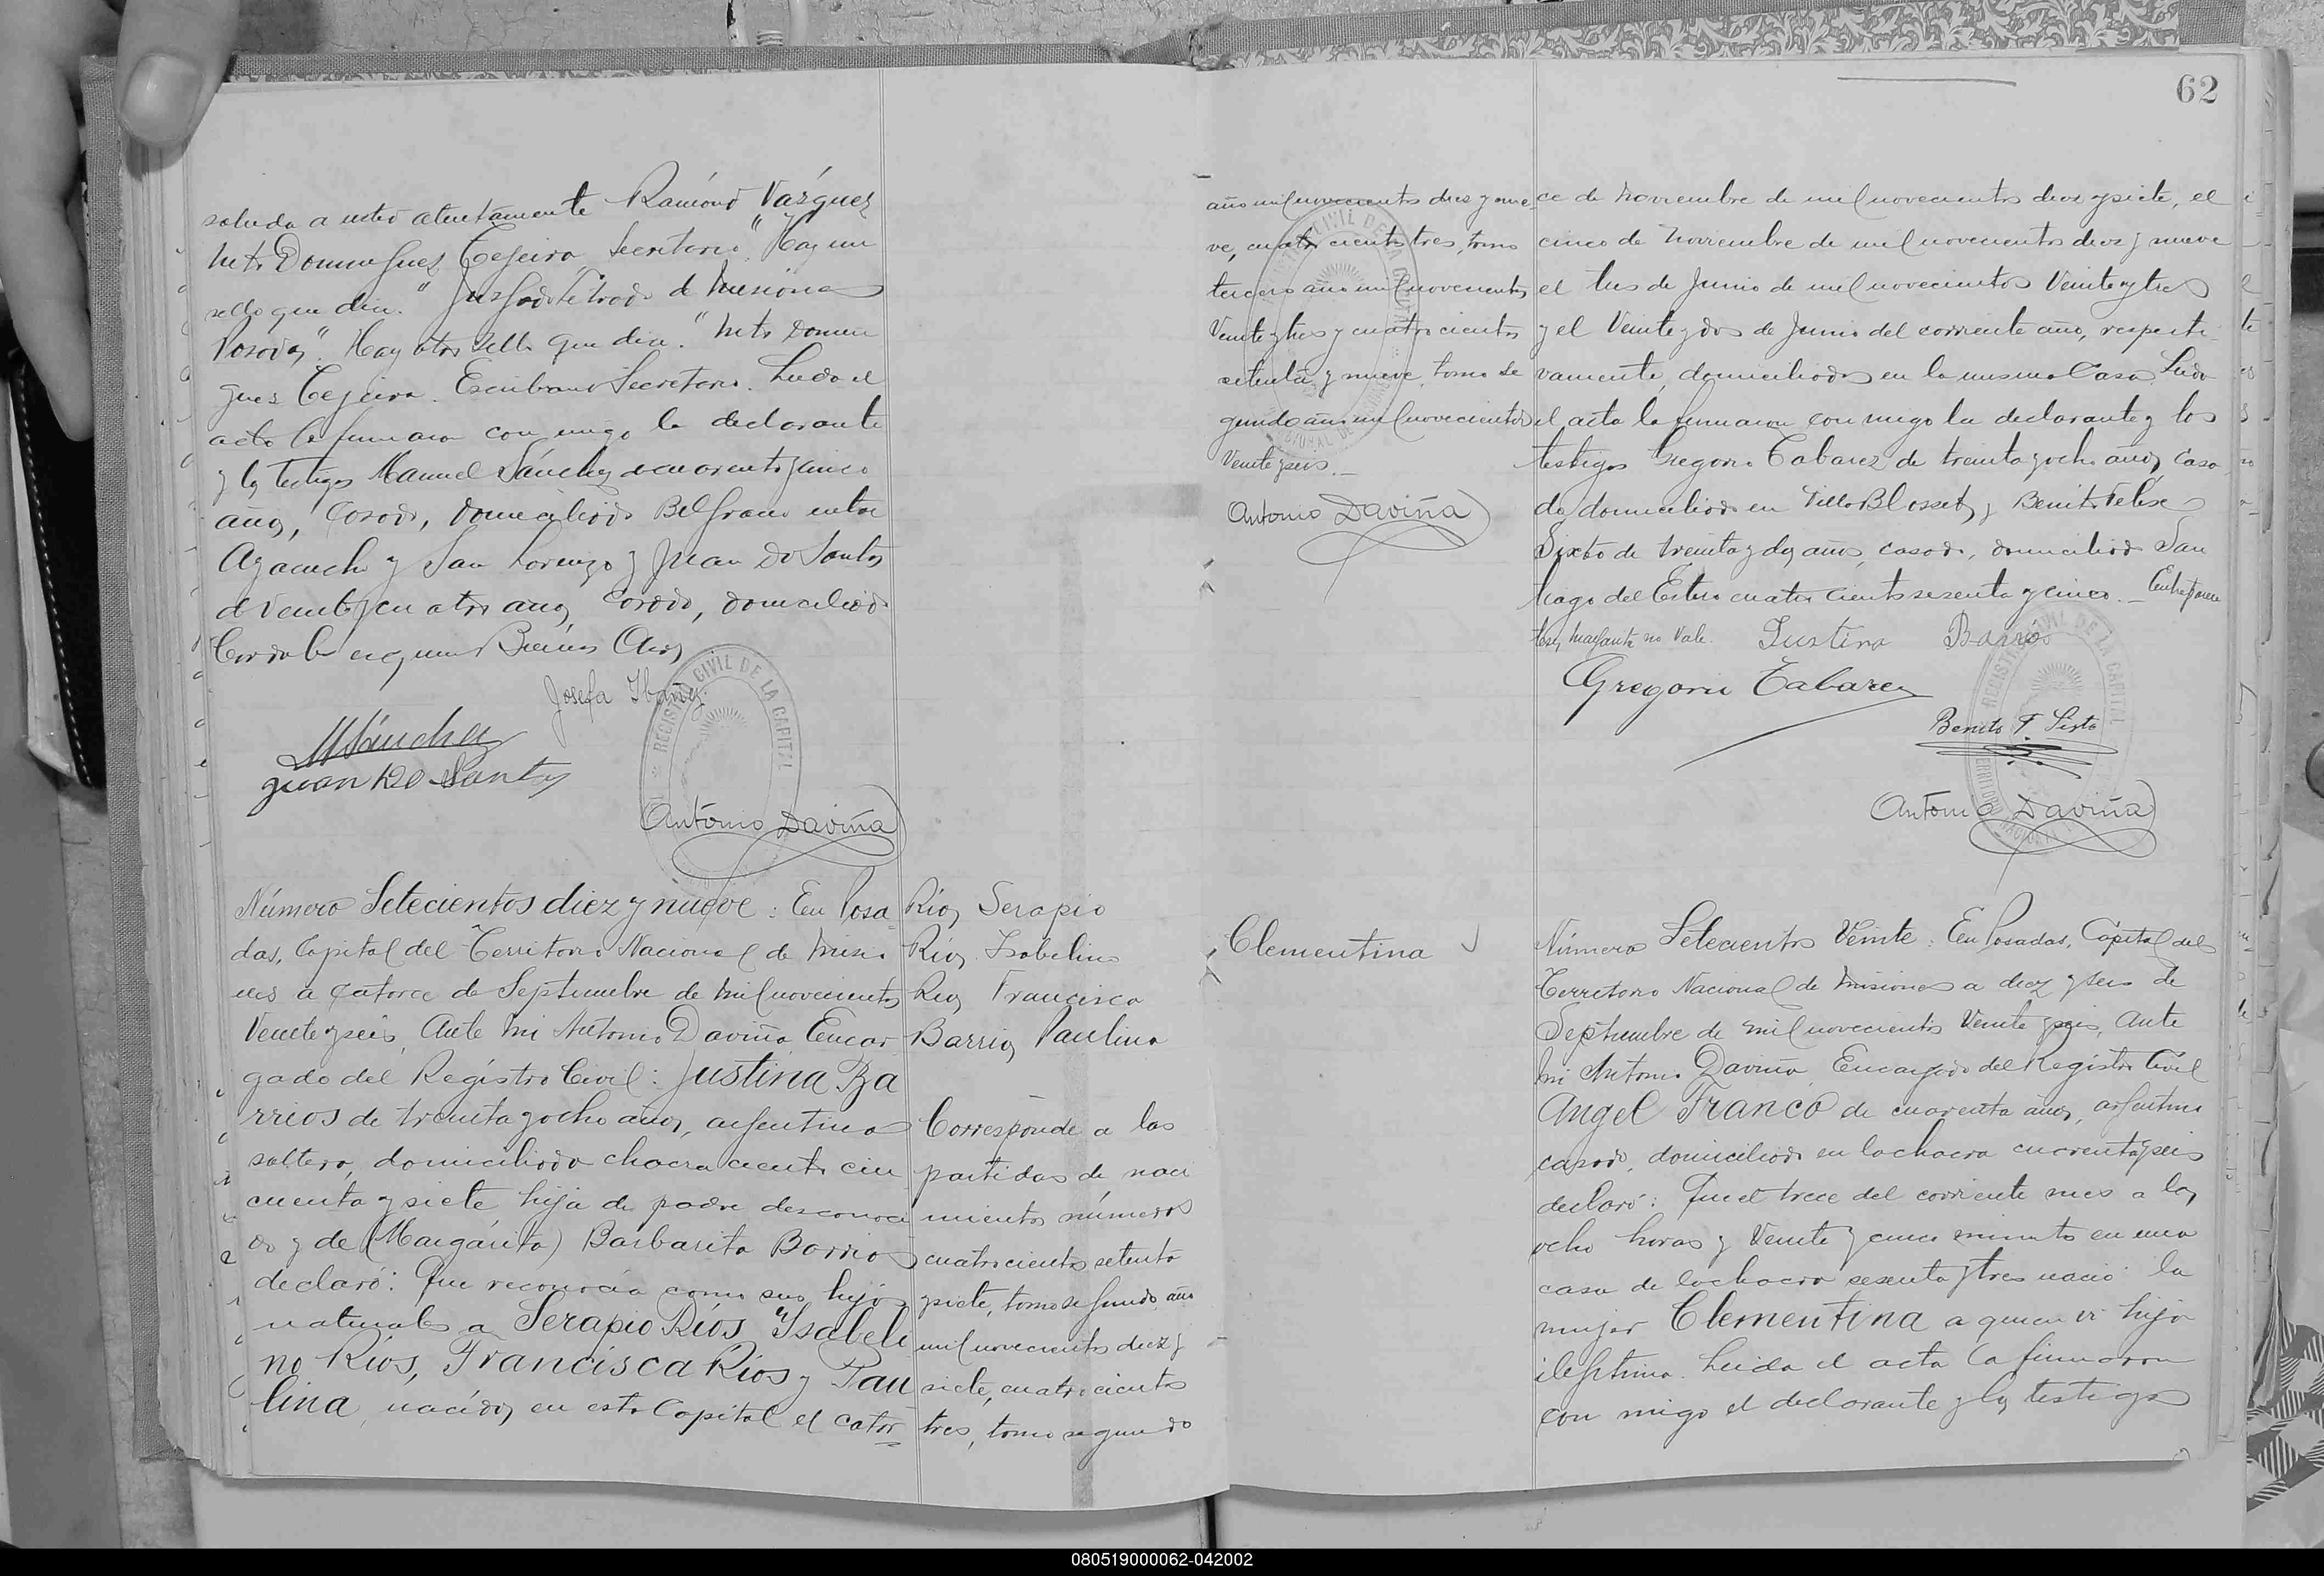 saluda a usted atentamente Ramón Vázquez
Neto Dominguez Tejeira, Secretario." Hay un
sello que dice: "Juzgado Letrado de Misiones
Posadas". Hay otro sello que dice: "Neto Domin
guez Tejeira. Escribano Secretario. Leida el
acta la firmaron con migo la declarante
y los testigos Manuel Sánchez de cuarenta y cinco
años, casado, domiciliado Belgrano entre
Ayacucho y San Lorenzo y Juan Do Santos
de veinte y cuatro años, casado, domiciliado
Cordoba esquina Buenos Aires
Josefa Ibañez
MSánchez
Juan Do Santos
REGISTRO CIVIL DE LA CAPITAL
Antonio Daviña
Número Setecientos diez y nueve: En Posa
das, Capital del Territorio Nacional de Misio
nes a catorce de Septiembre de mil novecientos
Veinte y seis, Ante mi Antonio Daviña Encar
gado del Registro Civil: Justina Ba
rrios de treinta y ocho años, argentina
soltera, domiciliada chacra ciento cin
cuenta y siete hija de padre desconoci
do y de (Margarita) Barbarita Barrios
declaró: Que reconocía como sus hijos
naturales a Serapio Ríos, Ysabeli
no Ríos, Francisca Ríos y Pau
lina, nacidos en esta Capital el cator
Rios Serapio
Rios Isabelino
Rios Francisca
Barrios Paulina
Corresponde a las
partidas de naci
mientos números
cuatrocientos setenta
y siete, tomo segundo año
mil novecientos diez y
siete, cuatrocientos
tres, tomo segundo
62
año mil novecientos diez y nue
ve, cuatrocientos tres, tomo
tercero año mil novecientos
Veinte y tres y cuatrocientos
setenta y nueve, tomo se
gundo año mil novecientos
Veinte y seis.—
Antonio Daviña
ce de Noviembre de mil novecientos diez y siete, el
cinco de Noviembre de mil novecientos diez y nueve
el tres de Junio de mil novecientos Veinte y tres
y el Veinte y dos de Junio del corriente año, respecti
vamente, domiciliados en la misma Casa. Leida
el acta la firmaron con migo la declarante y los
testigos Gregorio Tabarez de treinta y ocho años, casa
do domiciliado en Villa Blosset y Benito Felix
Sixto de treinta y dos años, casado, domiciliado San
tiago del Estero cuatrocientos sesenta y cinco.— Entre parén
tesis, Margarita no Vale. Justina Barrios
Gregorio Tabarez
Benito F. Sixto
REGISTRO CIVIL DE LA CAPITAL
Antonio Daviña
Clementina
Número Setecientos Veinte: En Posadas, Capital del
Territorio Nacional de Misiones a diez y seis de
Septiembre de mil novecientos Veinte y seis, Ante
mi Antonio Daviña, Encargado del Registro Civil
Angel Franco de cuarenta años, argentino
casado, domiciliado en la chacra cuarenta y seis
declaró: Que el trece del corriente mes a las
ocho horas y Veinte y cinco minutos en una
casa de la chacra sesenta y tres nació la
mujer Clementina a quien vi hija
ilegítima. Leida el acta la firmaron
con migo el declarante y los testigos
080519000062-042002